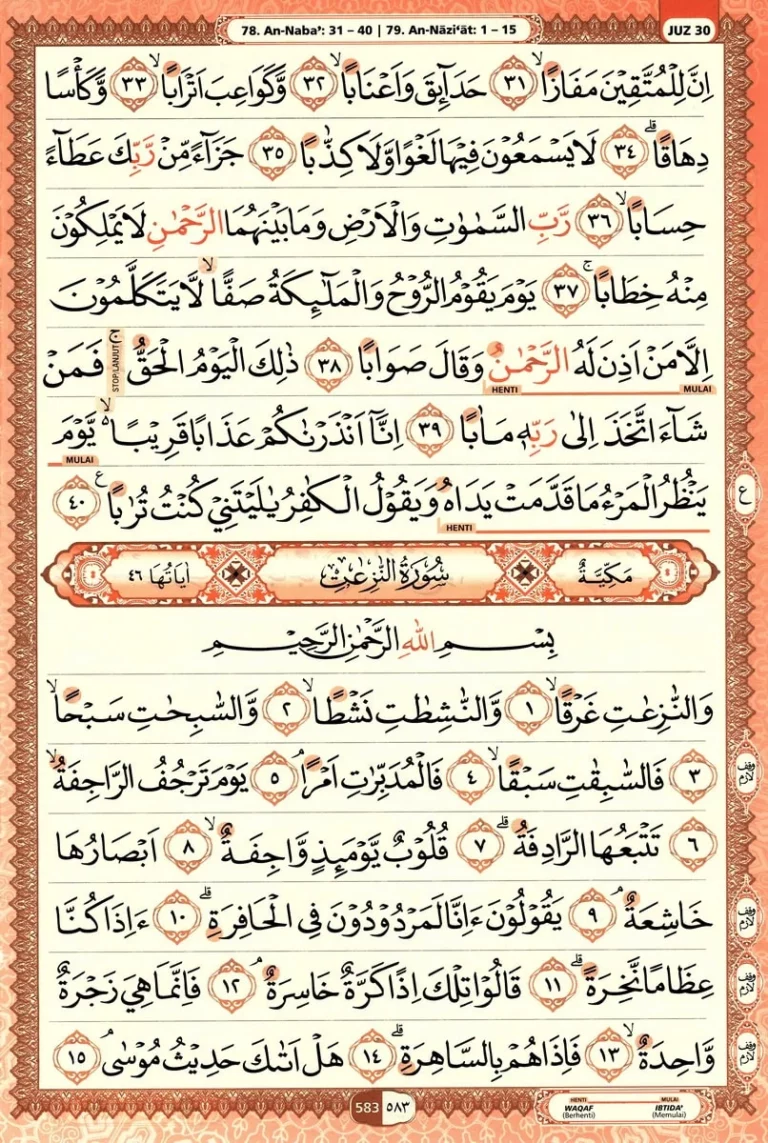 78. An-Naba': 31 – 40 | 79. An-Nāzi'āt: 1 – 15
JUZ 30
اِنَّ لِلْمُتَّقِيْنَ مَفَازًاۙ ٣١ حَدَاۤىِٕقَ وَاَعْنَابًاۙ ٣٢ وَّكَوَاعِبَ اَتْرَابًاۙ ٣٣ وَّكَأْسًا
دِهَاقًاۗ ٣٤ لَا يَسْمَعُوْنَ فِيْهَا لَغْوًا وَّلَا كِذّٰبًا ٣٥ جَزَاۤءً مِّنْ رَّبِّكَ عَطَاۤءً
حِسَابًاۙ ٣٦ رَّبِّ السَّمٰوٰتِ وَالْاَرْضِ وَمَا بَيْنَهُمَا الرَّحْمٰنِ لَا يَمْلِكُوْنَ
مِنْهُ خِطَابًاۚ ٣٧ يَوْمَ يَقُوْمُ الرُّوْحُ وَالْمَلٰۤىِٕكَةُ صَفًّاۙ لَّا يَتَكَلَّمُوْنَ
اِلَّا مَنْ اَذِنَ لَهُ الرَّحْمٰنُ وَقَالَ صَوَابًا ٣٨ ذٰلِكَ الْيَوْمُ الْحَقُّ ۛ فَمَنْ
STOP/LANJUT
HENTI MULAI
شَاۤءَ اتَّخَذَ اِلٰى رَبِّهٖ مَاٰبًا ٣٩ اِنَّآ اَنْذَرْنٰكُمْ عَذَابًا قَرِيْبًا ەۙ يَّوْمَ
MULAI
يَنْظُرُ الْمَرْءُ مَا قَدَّمَتْ يَدَاهُ وَيَقُوْلُ الْكٰفِرُ يٰلَيْتَنِيْ كُنْتُ تُرٰبًا ࣖ ٤٠
HENTI
ع
مَكِيَّةٌ سُوْرَةُ النّٰزِعٰتِ اٰيَاتُهَا ٤٦
بِسْمِ اللّٰهِ الرَّحْمٰنِ الرَّحِيْمِ
وَالنّٰزِعٰتِ غَرْقًاۙ ١ وَّالنّٰشِطٰتِ نَشْطًاۙ ٢ وَّالسّٰبِحٰتِ سَبْحًاۙ
٣ فَالسّٰبِقٰتِ سَبْقًاۙ ٤ فَالْمُدَبِّرٰتِ اَمْرًاۘ ٥ يَوْمَ تَرْجُفُ الرَّاجِفَةُۙ
وقف لازم
٦ تَتْبَعُهَا الرَّادِفَةُۗ ٧ قُلُوْبٌ يَّوْمَىِٕذٍ وَّاجِفَةٌۙ ٨ اَبْصَارُهَا
خَاشِعَةٌۘ ٩ يَقُوْلُوْنَ ءَاِنَّا لَمَرْدُوْدُوْنَ فِى الْحَافِرَةِۗ ١٠ ءَاِذَا كُنَّا
وقف لازم
عِظَامًا نَّخِرَةًۗ ١١ قَالُوْا تِلْكَ اِذًا كَرَّةٌ خَاسِرَةٌۘ ١٢ فَاِنَّمَا هِيَ زَجْرَةٌ
وقف لازم
وَّاحِدَةٌۙ ١٣ فَاِذَا هُمْ بِالسَّاهِرَةِۗ ١٤ هَلْ اَتٰىكَ حَدِيْثُ مُوْسٰىۘ ١٥
وقف لازم
583 ٥٨٣
HENTI MULAI
WAQAF IBTIDA'
(Berhenti) (Memulai)